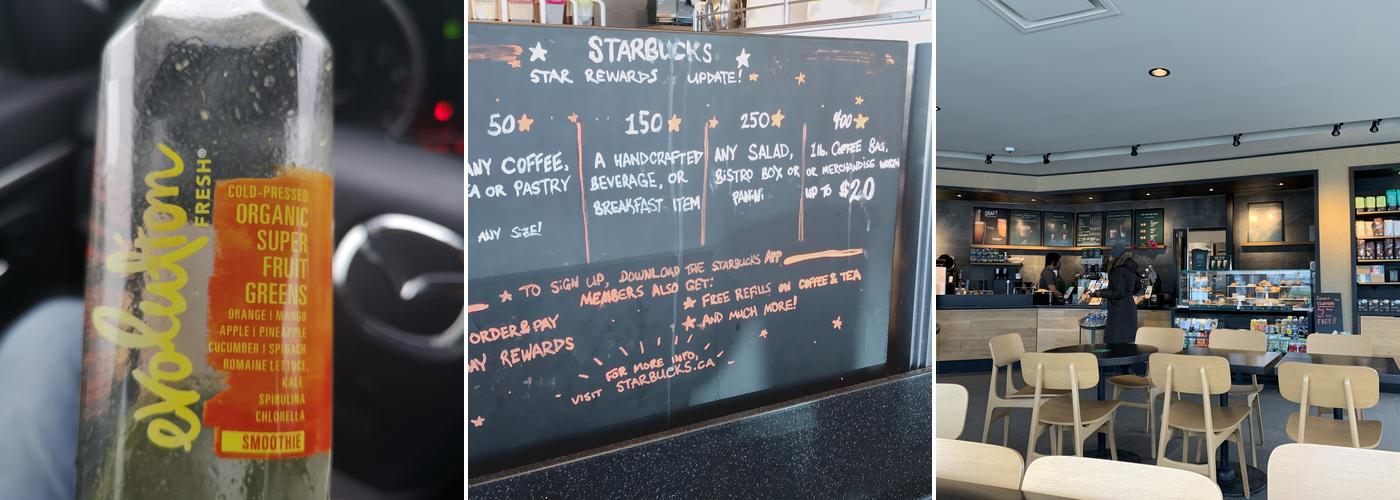 evolution
FRESH®
COLD-PRESSED
ORGANIC
SUPER
FRUIT
GREENS
ORANGE | MANGO
APPLE | PINEAPPLE
CUCUMBER | SPINACH
ROMAINE LETTUCE,
KALE
SPIRULINA
CHLORELLA
SMOOTHIE
STARBUCKS
STAR REWARDS UPDATE!
50
ANY COFFEE,
EA OR PASTRY
ANY SIZE!
150
A HANDCRAFTED
BEVERAGE, OR
BREAKFAST ITEM
250
ANY SALAD,
BISTRO BOX OR
PANINI
400
1 lb. COFFEE BAG,
OR MERCHANDISE WORTH
UP TO $20
TO SIGN UP, DOWNLOAD THE STARBUCKS APP
MEMBERS ALSO GET:
FREE REFILLS ON COFFEE & TEA
AND MUCH MORE!
ORDER & PAY
AY REWARDS
FOR MORE INFO,
VISIT STARBUCKS.CA
DRAFT
FREE!!